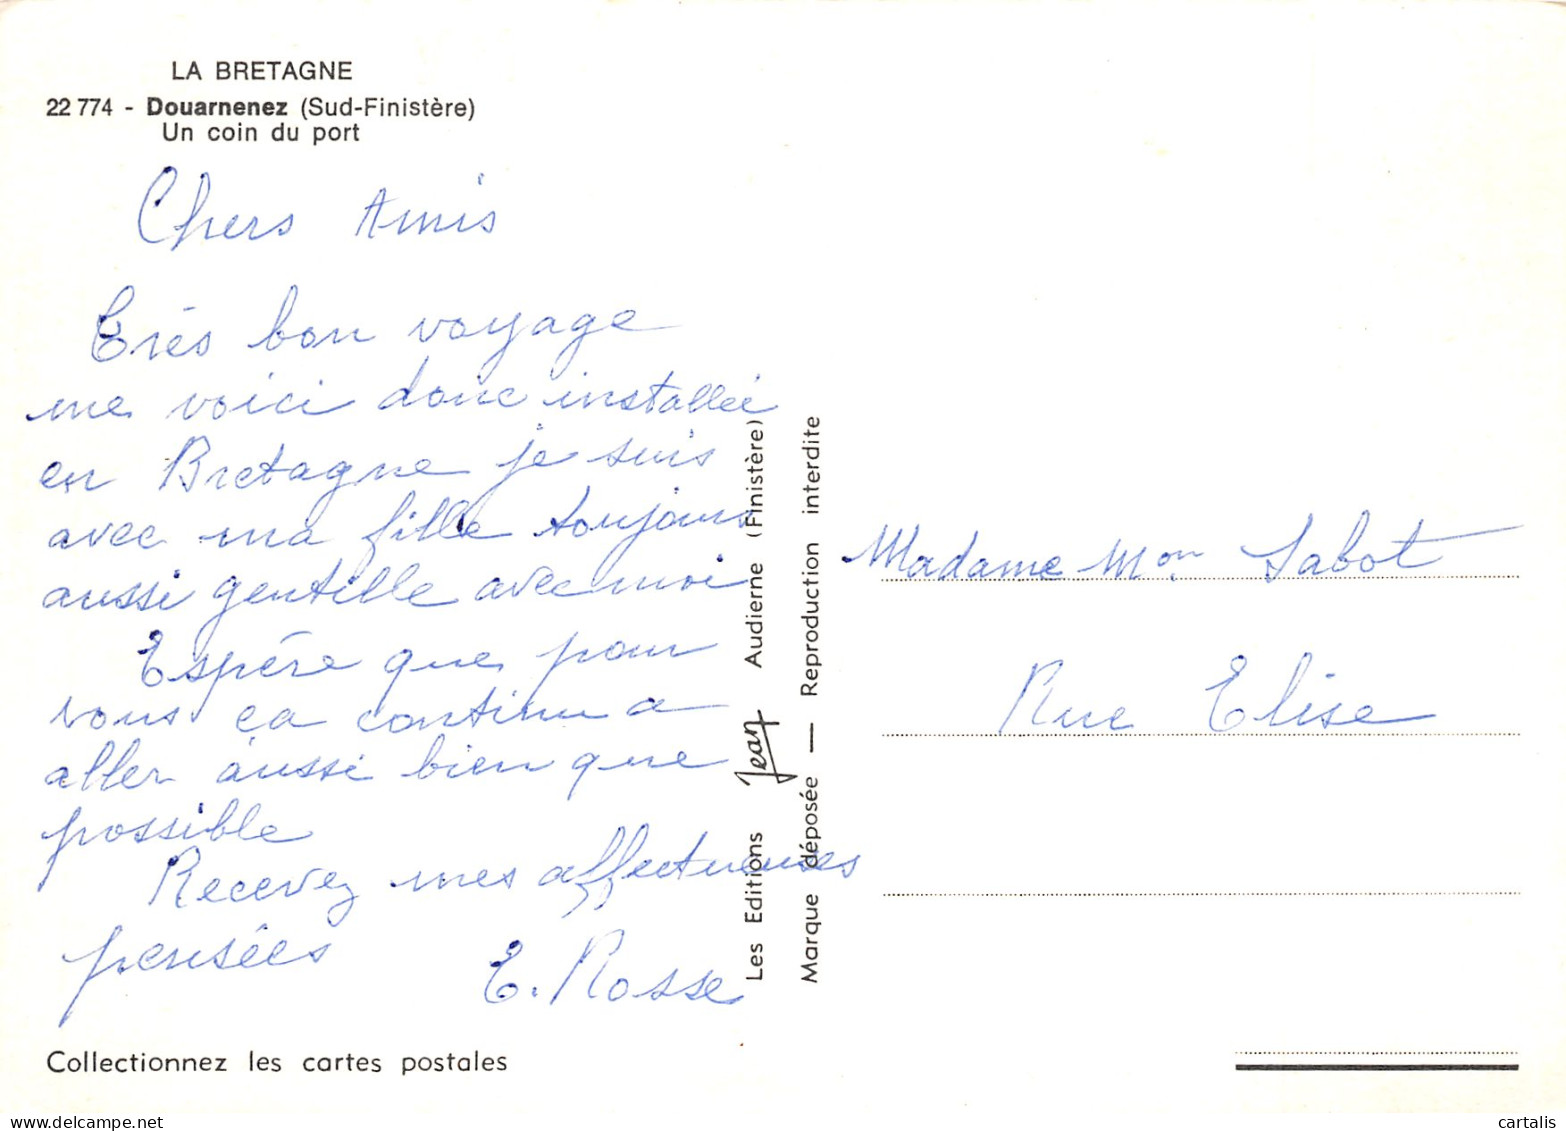 LA BRETAGNE
22 774 - Douarnenez (Sud-Finistère)
Un coin du port
Chers Amis
Très bon voyage
me voici donc installée
en Bretagne je suis
avec ma fille toujours
aussi gentille avec moi
Espère que pour
vous ça continu a
aller aussi bien que
possible
Recevez mes affectueuses
pensées
E. Rosse
Collectionnez les cartes postales
Les Editions Jean Audierne (Finistère)
Marque déposée — Reproduction interdite
Madame Mon Sabot
Rue Elise
www.delcampe.net
cartalis